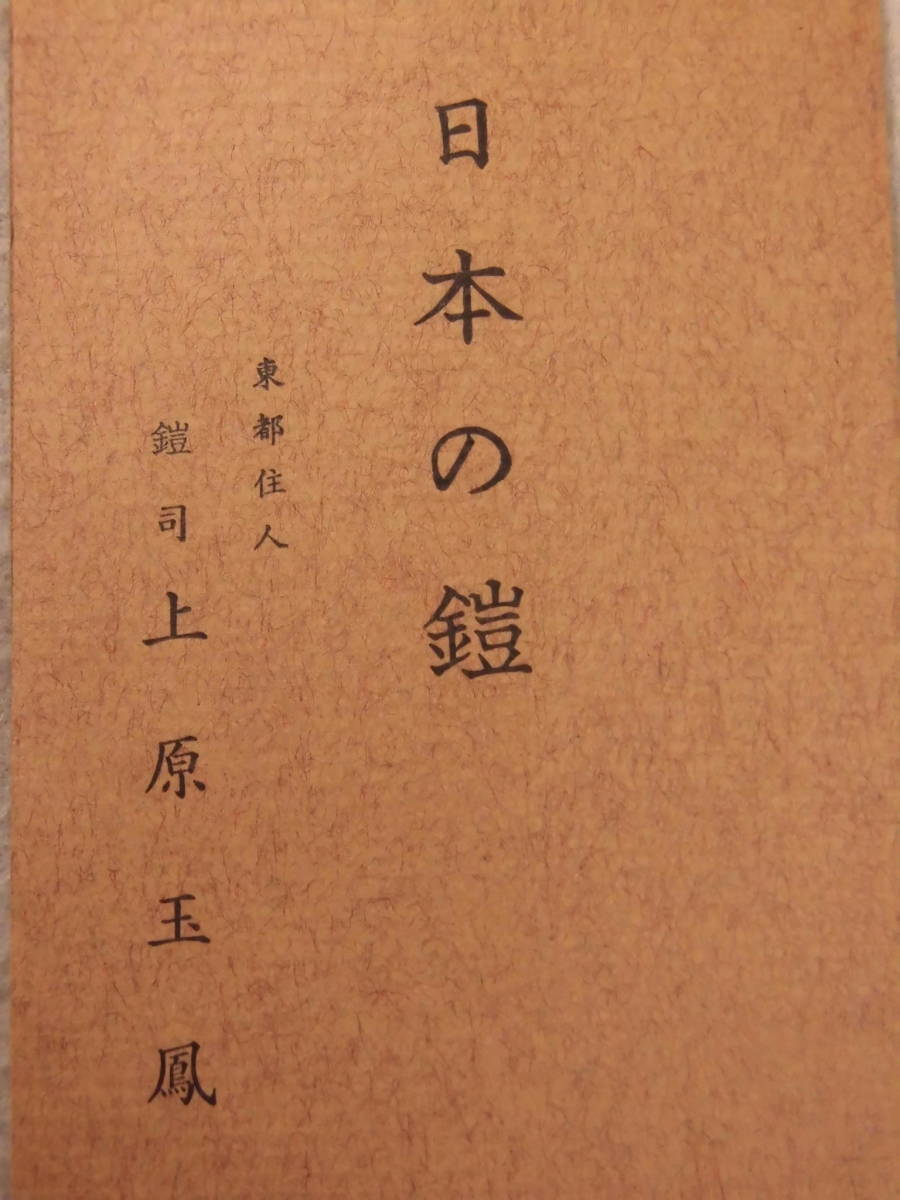 日本の鎧
東都住人
鎧司上原玉鳳